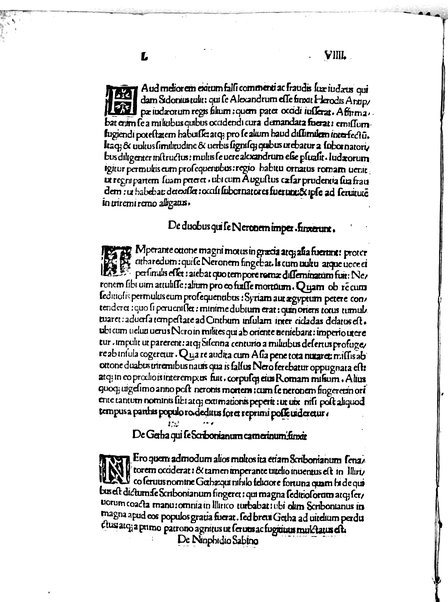 L VIIII.
HAud meliorem exitum falsi commenti ac fraudis suæ iudæus qui
dam Sidonius tulit: qui se Alexandrum esse finxit Herodis Antip/
pæ iudæorum regis filium: quem pater occidi iusserat. Affirma/
bat enim se a militibus quibus occidendi cura demandata fuerat: emissum
fugiendi potestatem habuisse atq; pro se alium haud dissimilem interfectū.
Itaq; & uultus similitudine & uerbis signisq; quibus utebatur a subornatori/
bus diligenter instructus: multis se uere alexandrum esse psuasit. Iudæorum
igitur permultis eum prosequentibus: regio habitu ornatus romam uenit
ut regni partem suam peteret. ubi cum Augustus cæsar prudentia sua frau
dem: ut habebat: detexisset: occisi subornatores fuerunt: & ipse ad seruitutē
in triremi remo alligatus.
De duobus qui se Neronem imper. finxerunt.
IMperante ottone magni motus in græcia atq; asia fuerunt: propter
citharedum: qui se Neronem fingebat. Is cum uultu atque uoce ei
persimilis esset: aiebat quo tempore romæ disseminatum fuit: Ne/
ronem sibi uim attulisse: alium pro eo fuisse mortuum. Quam ob rē cum
seditiosis permultis eum prosequentibus: Syriam aut ægyptum petere con/
tenderet: quo si peruenisset: minime dubium erat: quin oriens totus tumul/
tuaret: aduersa tempestate ad Cinthum insulam inter cicladas delatus est.
ubi cum uelut uerus Nero in milites qui ab oriente ueniebant: imperio utere
tur. impulit ut parerent: atq; Sisenna centurio a militibus desertus profuge/
re ab insula cogeretur. Qua re audita cum Asia pene tota nutaret: missis ab
ottone duabus triremibus nauis qua is falsus Nero ferebatur oppugnata est
atq; in eo prælio is interemptus fuit. corpusq; eius Romam missum. Alius
quoq; uigesimo anno post neronis mortem: cum se neronem fingeret in ori
ente tantum nominis sibi atq; extimationis peperit: ut uix nisi post aliquod
tempus a parthis populo ro. deditus foret: reprimi posse uideretur.
De Getha qui se Scribonianum camerinum finxit
NEro quem admodum alios multos ita etiam Scribonianum sena/
torem occiderat: & tamen imperante uitelio inuentus est in Illiri/
co seruus nomine Getha: qui nihilo feliciore fortuna quam hi de qui
bus est dictum: se Scribonianum fingeret: qui magna seditiosorum atq; ser/
uorum coacta manu: omnia in Illirico turbabat: ubi olim Scribonianus in
magna apud eos populos gratia fuerat. sed breui Getha ad uitelium perdu
ctus: atq; a primo patrono agnitus ut seruus ac fugitiuus mulctatus est.
De Ninphidio Sabino